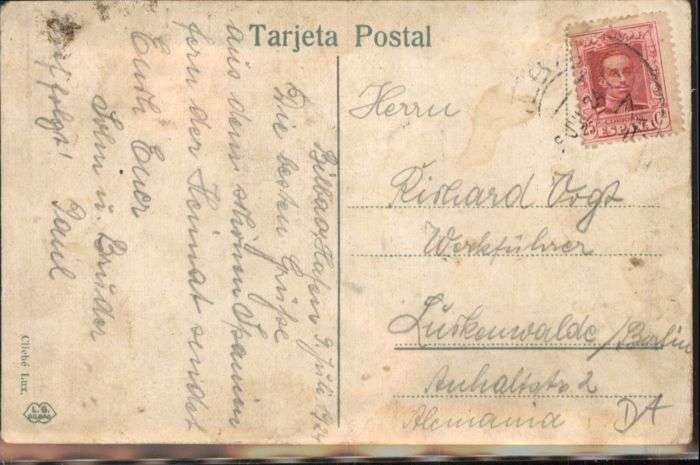 Tarjeta Postal
Bilbao Hafen 9 Juli 1924
Die besten Grüße
aus dem schönen Spanien
fern der Heimat sendet
Euch Euer
Sohn u. Bruder
Paul
Brief folgt!
Herrn
Richard Vogt
Werkführer
Luckenwalde/Berlin
Anhaltstr 2
Alemania
DA
Cliché Lux.
L.G.
BILBAO
25